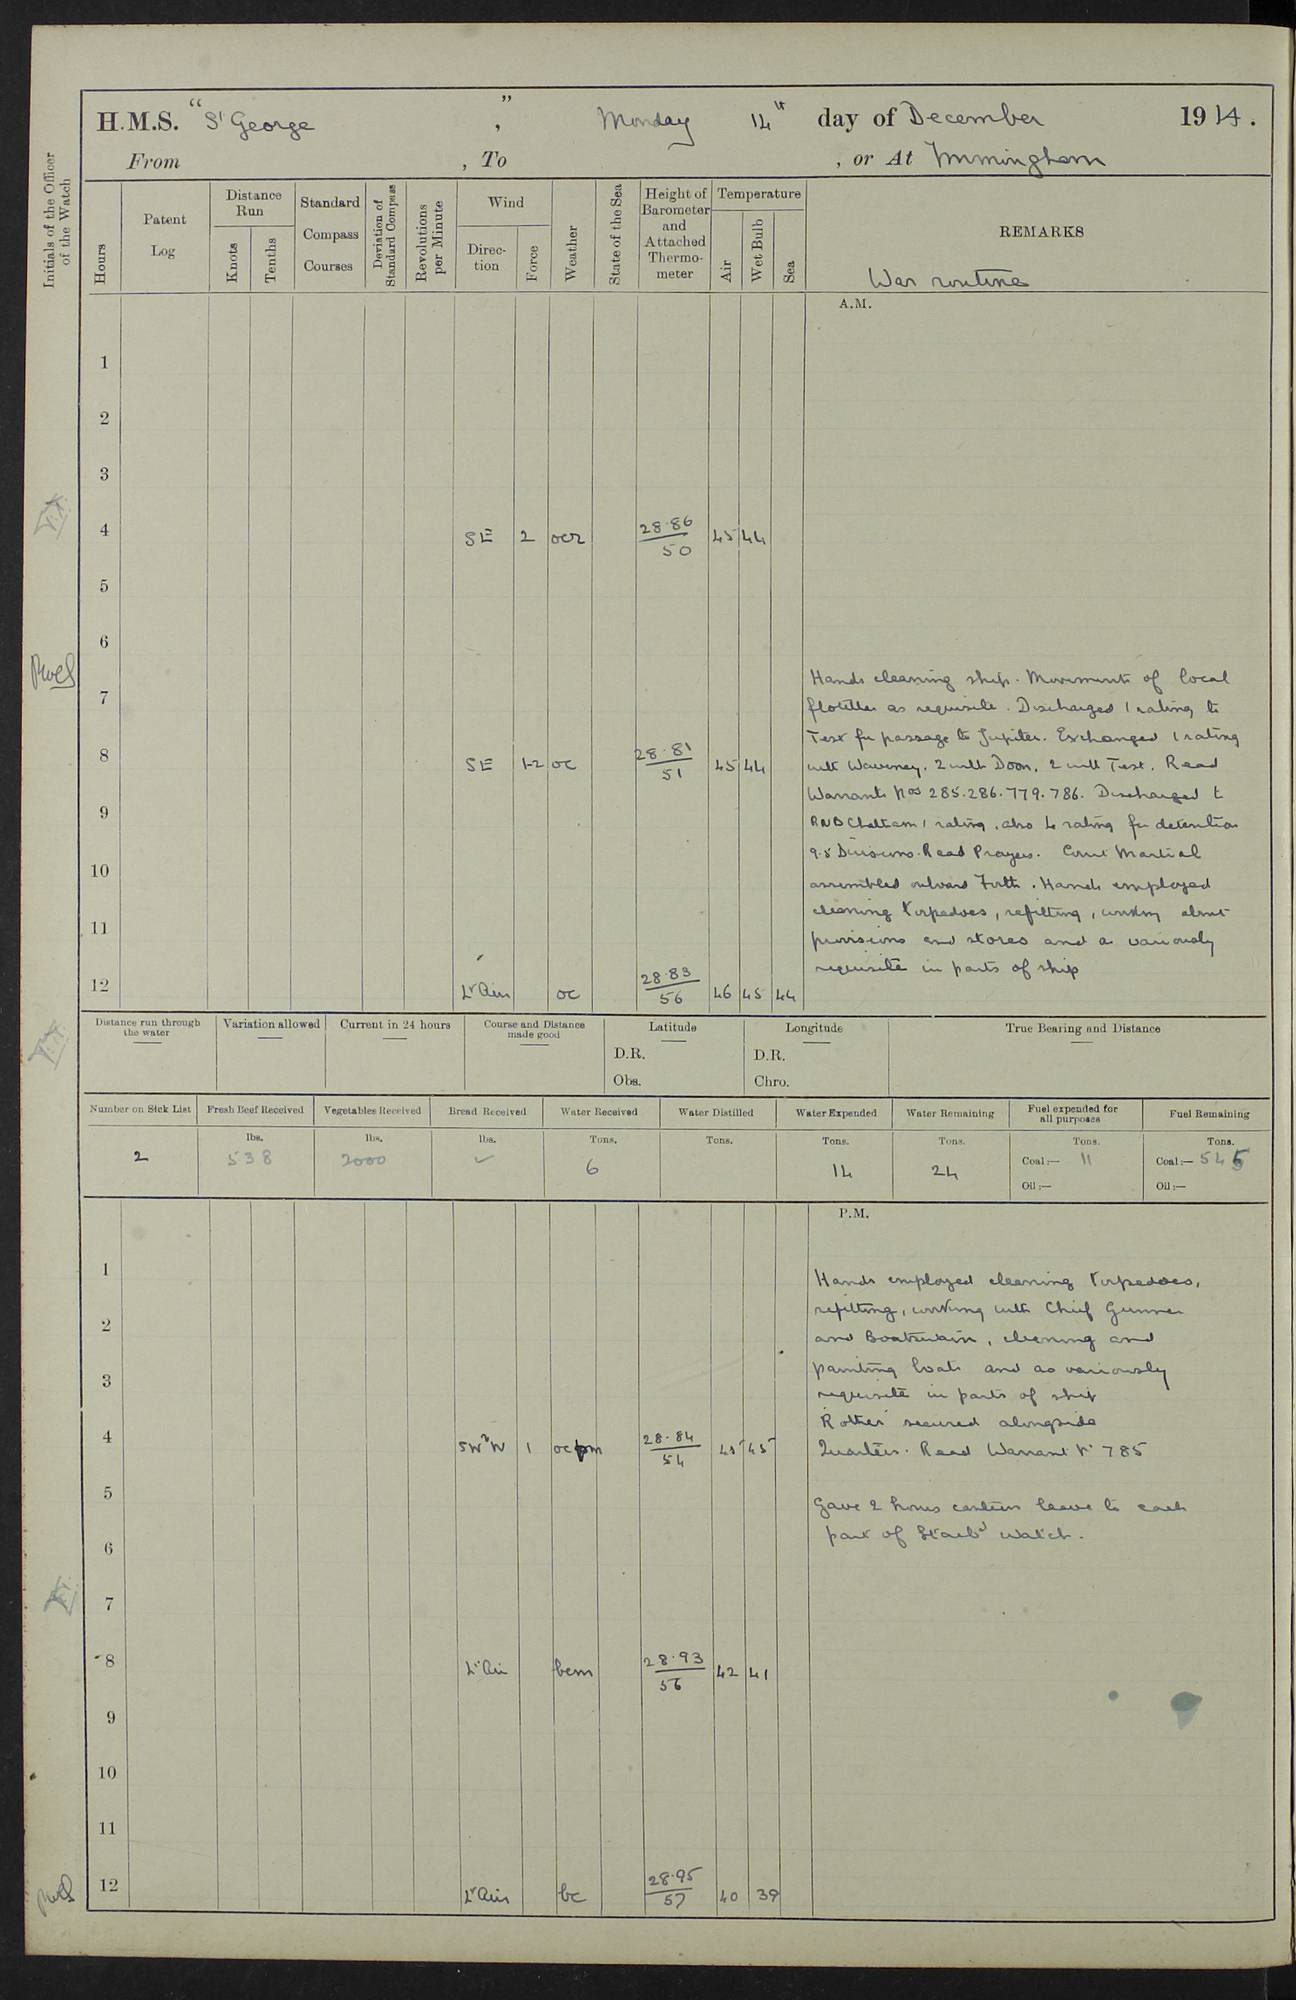 H.M.S. "St George", Monday 14th day of December 1914.
From , To , or At Immingham
Initials of the Officer of the Watch
Hours
Patent Log
Distance Run
Knots
Tenths
Standard Compass Courses
Deviation of Standard Compass
Revolutions per Minute
Wind
Direction
Force
Weather
State of the Sea
Height of Barometer and Attached Thermometer
Temperature
Air
Wet Bulb
Sea
REMARKS
War routine
A.M.
1
2
3
4 SE 2 ocr 28.86 50 45 44
5
6
7
8 SE 1-2 oc 28.81 51 45 44
9
10
11
12 Lt Airs oc 28.83 56 46 45 44
Hands cleaning ship. Movements of local
flotilla as requisite. Discharged 1 rating to
Test for passage to Jupiter. Exchanged 1 rating
with Waveney. 2 with Doon, 2 with Test. Read
Warrants Nos 285.286.779.786. Discharged to
RNB Chatham 1 rating, also 4 rating for detention
9.5 Divisions. Read Prayers. Court Martial
assembled onboard Forth. Hands employed
cleaning torpedoes, refitting, working about
provisions and stores and as variously
requisite in parts of ship
Distance run through the water
Variation allowed
Current in 24 hours
Course and Distance made good
Latitude
D.R.
Obs.
Longitude
D.R.
Chro.
True Bearing and Distance
Number on Sick List
Fresh Beef Received
Vegetables Received
Bread Received
Water Received
Water Distilled
Water Expended
Water Remaining
Fuel expended for all purposes
Fuel Remaining
2
lbs. 538
lbs. 2000
lbs. ✓
Tons. 6
Tons.
Tons. 14
Tons. 24
Tons.
Coal:— 11
Oil:—
Tons.
Coal:— 545
Oil:—
P.M.
1
2
3
4 SWbW 1 ocpm 28.84 54 45 45
5
6
7
8 Lt Air bcm 28.93 56 42 41
9
10
11
12 Lt Airs bc 28.95 57 40 39
Hands employed cleaning torpedoes,
refitting, working with Chief Gunner
and Boatswain, cleaning and
painting boats and as variously
requisite in parts of ship
Rother secured alongside
Quarters. Read Warrant No 785
Gave 2 hours canteen leave to each
part of Starbd watch.